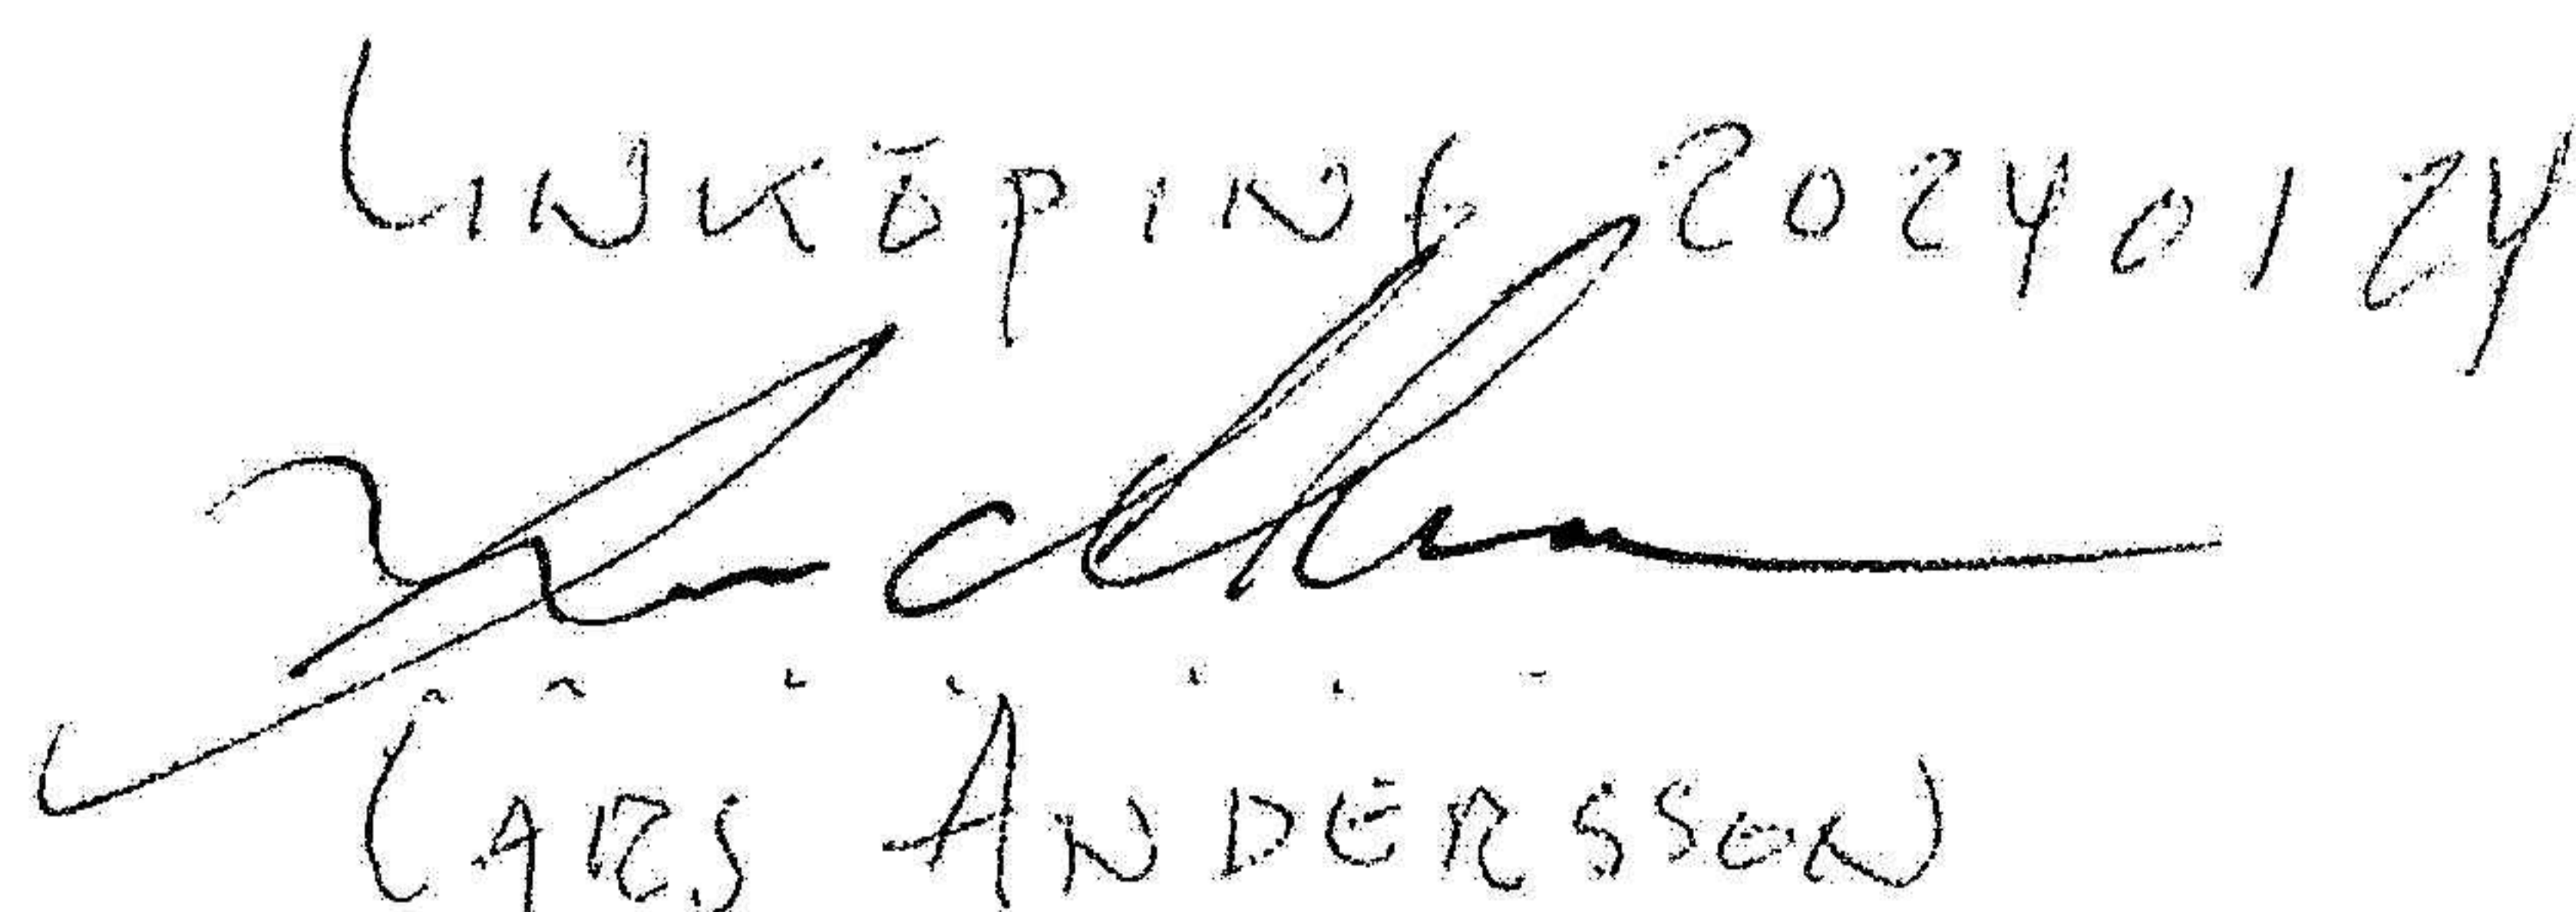 LINKÖPING 20240124
LARS ANDERSSON